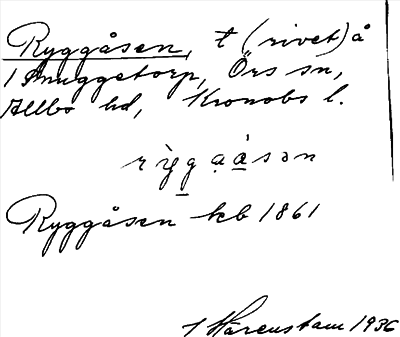 Ryggåsen, t (rivet) å
1 Snuggetorp, Örs sn,
Allbo hd, Kronobs l.
rỳg̲ga̲åsən
Ryggåsen kb 1861
J Hårenstam 1936